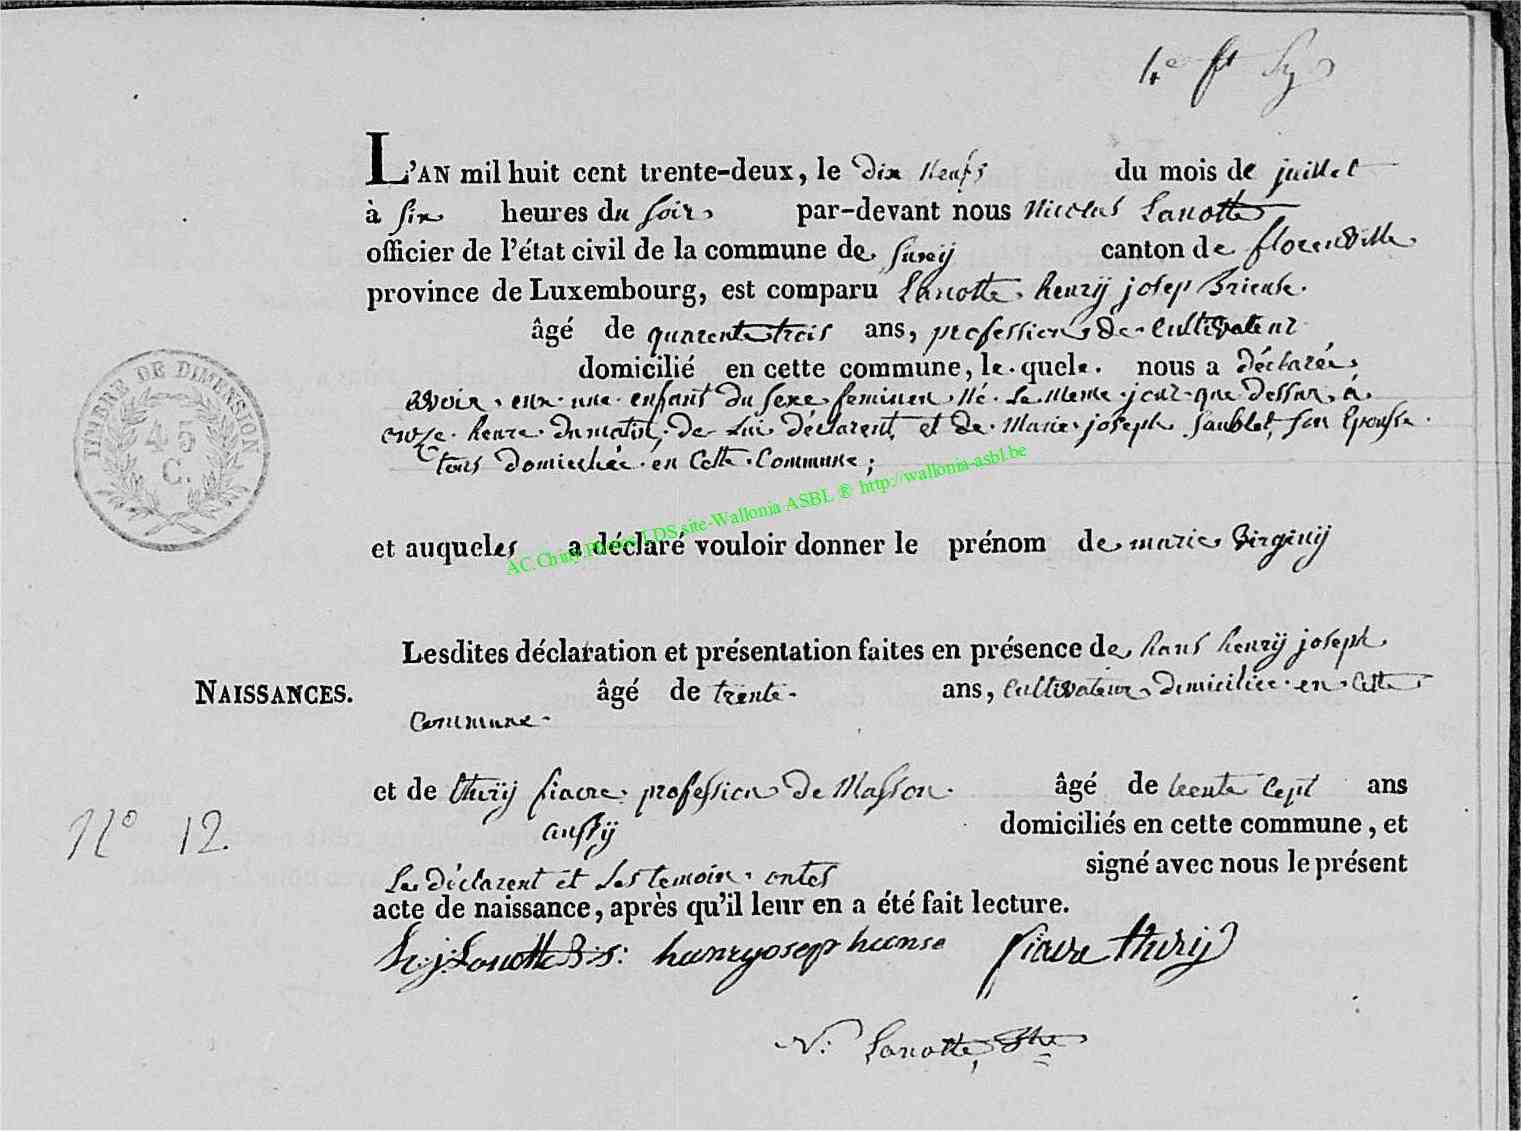 4e ft
L'AN mil huit cent trente-deux, le dix neufs du mois de juillet
à six heures du soir par-devant nous Nicolas Lanotte
officier de l'état civil de la commune de Suxij canton de florenville
province de Luxembourg, est comparu Lanotte henrij josep
âgé de quarente trois ans, profession de cultivateur
domicilié en cette commune, le quele nous a déclarée
avoir eux une enfant du sexe feminen né le meme jour que dessur, à
onze heure du matin, de lui déclarent et de Marie joseph Saublet son Epousse
tous domiciliée en Cette Commune;
et auqueles a déclaré vouloir donner le prénom de marie Virginij
Lesdites déclaration et présentation faites en présence de hans henrij joseph
NAISSANCES. âgé de trente ans, cultivateur domiciliée en Cette
Commune
et de thirij fiacre profession de Masson âgé de trente Cept ans
aussij domiciliés en cette commune, et
Le déclarent et les temoin ontes signé avec nous le présent
acte de naissance, après qu'il leur en a été fait lecture.
N° 12
h: j: Lanotte B:s: hanryosep hanse fiacre thirij
N: Lanotte
TIMBRE DE DIMENSION
45
C.
AC.Chiny Photos LDS site-Wallonia ASBL ® http://wallonia-asbl.be